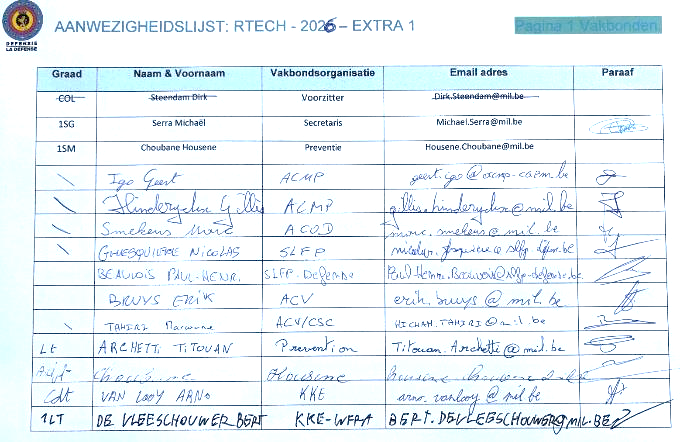 DEFENSIE
LA DEFENSE
AANWEZIGHEIDSLIJST: RTECH - 2026 – EXTRA 1
Pagina 1 Vakbonden.
Graad Naam & Voornaam Vakbondsorganisatie Email adres Paraaf
COL Steendam Dirk Voorzitter Dirk.Steendam@mil.be
1SG Serra Michaël Secretaris Michael.Serra@mil.be
1SM Choubane Housene Preventie Housene.Choubane@mil.be
\ Igo Geert ACMP geert.igo@acmp-cgpm.be
\ Hinderyckx Gillis ACMP gillis.hinderyckx@mil.be
\ Smekens Marc ACOD marc.smekens@mil.be
\ GHESQUIERE NICOLAS SLFP
BEAULOIS PAUL-HENRI SLFP-Defense
BRUYS ERIK ACV erik.bruys@mil.be
\ TAHIRI ACV/CSC HICHAM.TAHIRI@mil.be
Lt ARCHETTI TITOUAN Prevention Titouan.Archetti@mil.be
Adjt Housene
Cdt VAN LOOY ARNO KKE arno.vanlooy@mil.be
1LT DE VLEESCHOUWER BERT KKE-WERA BERT.DEVLEESCHOUWER@MIL.BE